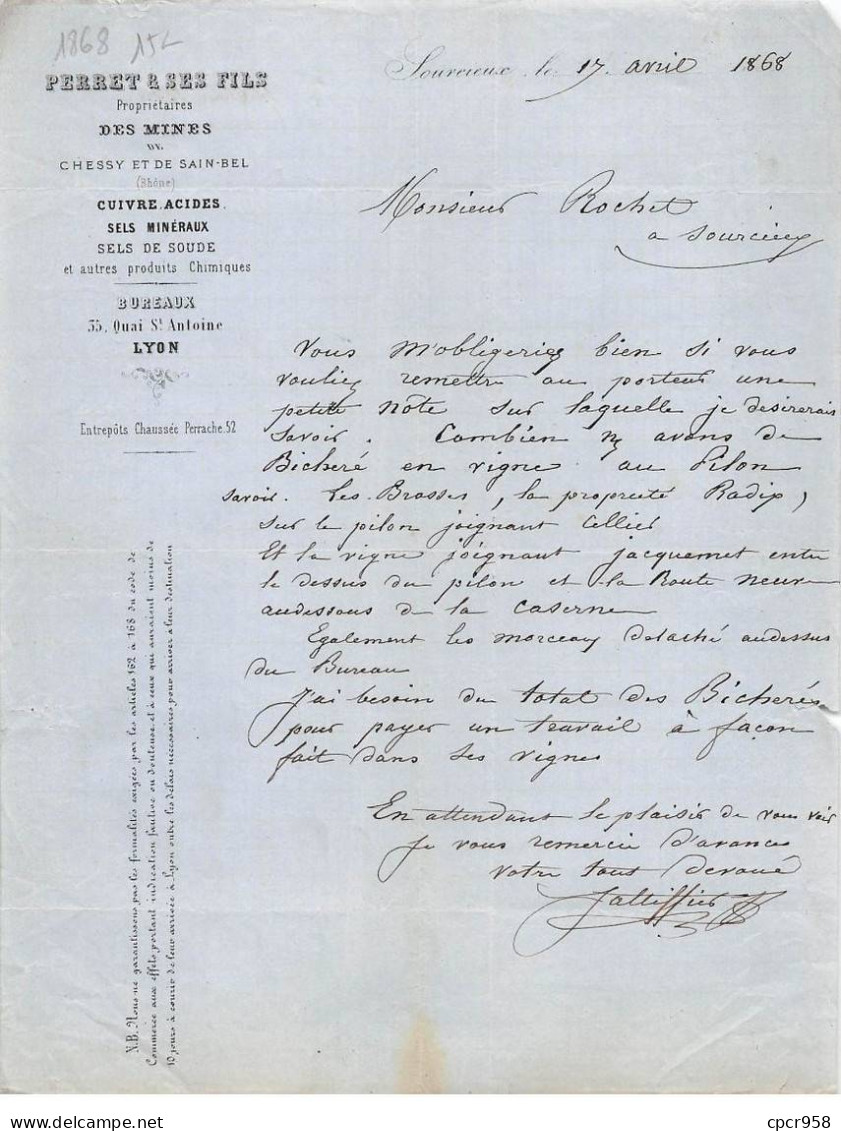 1868 15L
PERRET & SES FILS
Propriétaires
DES MINES
DE
CHESSY ET DE SAIN-BEL
(Rhône)
CUIVRE. ACIDES.
SELS MINÉRAUX
SELS DE SOUDE
et autres produits Chimiques
BUREAUX
35, Quai St Antoine
LYON
Entrepôts Chaussée Perrache. 52
N.B. Nous ne garantissons pas les formalités exigées par les articles 162 à 168 du code de
Commerce aux effets portant indication fautive ou douteuse et à ceux qui auraient moins de
10 jours à courir de leur arrivée à Lyon outre les délais nécessaires pour arriver à leur destination
Sourcieux, le 17 avril 1868
Monsieur Rochet
a Sourcieux
Vous m'obligeriez bien si vous
vouliez remettre au porteur une
petite note sur laquelle je desirerais
savoir. Combien nş avons de
Bicheré en vigne au Pilon
savoir. Les Brosses, la propriété Radix,
sur le pilon joignant Cellier
Et la vigne joignant jacquemet entre
le dessus du pilon et la Route neuve
audessous de la caserne
Egalement les morceaux detaché audessus
du Bureau
J'ai besoin du total des Bicherés
pour payer un travail à façon
fait dans ses vignes
En attendant le plaisir de vous voir
Je vous remercie d'avance
votre tout devoué
cpcr958